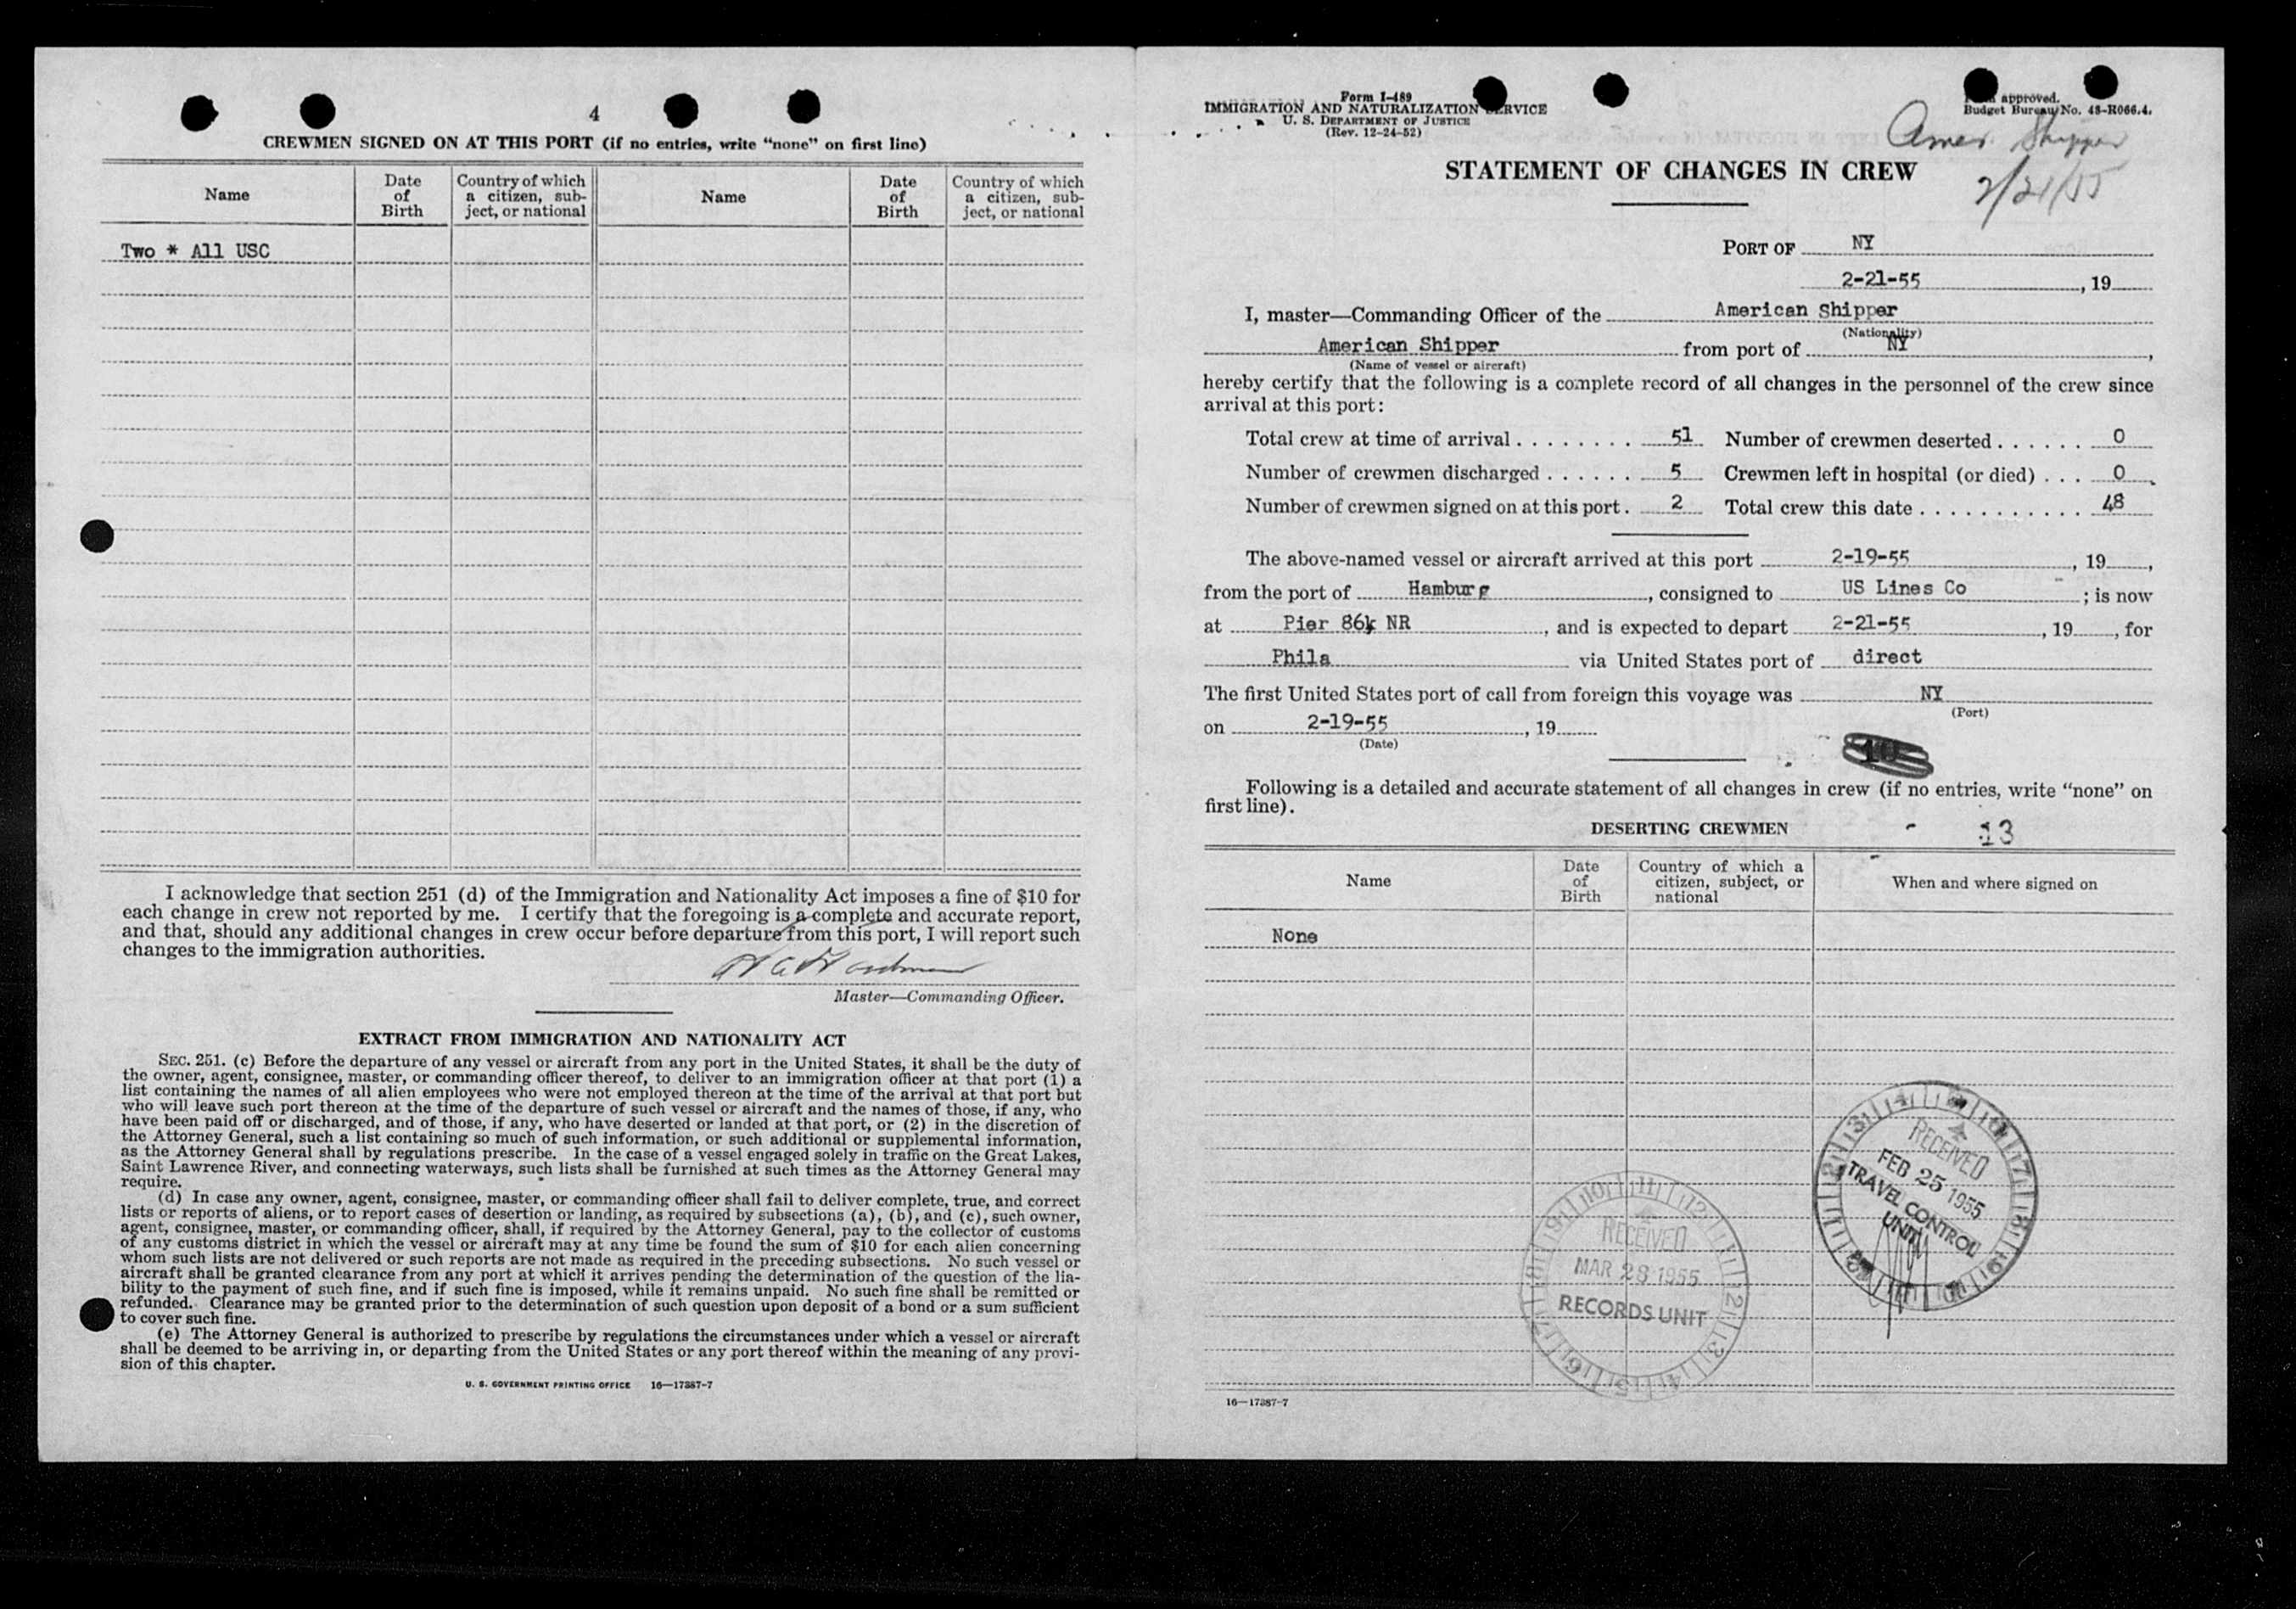 4
CREWMEN SIGNED ON AT THIS PORT (if no entries, write "none" on first line)
Name
Date of Birth
Country of which a citizen, subject, or national
Name
Date of Birth
Country of which a citizen, subject, or national
Two * All USC
I acknowledge that section 251 (d) of the Immigration and Nationality Act imposes a fine of $10 for
each change in crew not reported by me. I certify that the foregoing is a complete and accurate report,
and that, should any additional changes in crew occur before departure from this port, I will report such
changes to the immigration authorities.
Master—Commanding Officer.
EXTRACT FROM IMMIGRATION AND NATIONALITY ACT
SEC. 251. (c) Before the departure of any vessel or aircraft from any port in the United States, it shall be the duty of
the owner, agent, consignee, master, or commanding officer thereof, to deliver to an immigration officer at that port (1) a
list containing the names of all alien employees who were not employed thereon at the time of the arrival at that port but
who will leave such port thereon at the time of the departure of such vessel or aircraft and the names of those, if any, who
have been paid off or discharged, and of those, if any, who have deserted or landed at that port, or (2) in the discretion of
the Attorney General, such a list containing so much of such information, or such additional or supplemental information,
as the Attorney General shall by regulations prescribe. In the case of a vessel engaged solely in traffic on the Great Lakes,
Saint Lawrence River, and connecting waterways, such lists shall be furnished at such times as the Attorney General may
require.
(d) In case any owner, agent, consignee, master, or commanding officer shall fail to deliver complete, true, and correct
lists or reports of aliens, or to report cases of desertion or landing, as required by subsections (a), (b), and (c), such owner,
agent, consignee, master, or commanding officer, shall, if required by the Attorney General, pay to the collector of customs
of any customs district in which the vessel or aircraft may at any time be found the sum of $10 for each alien concerning
whom such lists are not delivered or such reports are not made as required in the preceding subsections. No such vessel or
aircraft shall be granted clearance from any port at which it arrives pending the determination of the question of the lia-
bility to the payment of such fine, and if such fine is imposed, while it remains unpaid. No such fine shall be remitted or
refunded. Clearance may be granted prior to the determination of such question upon deposit of a bond or a sum sufficient
to cover such fine.
(e) The Attorney General is authorized to prescribe by regulations the circumstances under which a vessel or aircraft
shall be deemed to be arriving in, or departing from the United States or any port thereof within the meaning of any provi-
sion of this chapter.
U. S. GOVERNMENT PRINTING OFFICE 16—17387-7
Form I-489
IMMIGRATION AND NATURALIZATION SERVICE
U. S. DEPARTMENT OF JUSTICE
(Rev. 12-24-52)
approved.
Budget Bureau No. 43-R066.4.
Amer. Shipper
2/21/55
STATEMENT OF CHANGES IN CREW
PORT OF NY
2-21-55, 19
I, master—Commanding Officer of the American Shipper
(Nationality)
American Shipper from port of NY,
(Name of vessel or aircraft)
hereby certify that the following is a complete record of all changes in the personnel of the crew since
arrival at this port:
Total crew at time of arrival 51 Number of crewmen deserted 0
Number of crewmen discharged 5 Crewmen left in hospital (or died) 0
Number of crewmen signed on at this port 2 Total crew this date 48
The above-named vessel or aircraft arrived at this port 2-19-55, 19,
from the port of Hamburg, consigned to US Lines Co; is now
at Pier 86 NR, and is expected to depart 2-21-55, 19, for
Phila via United States port of direct
The first United States port of call from foreign this voyage was NY
(Port)
on 2-19-55, 19
(Date)
Following is a detailed and accurate statement of all changes in crew (if no entries, write "none" on
first line).
DESERTING CREWMEN
13
Name
Date of Birth
Country of which a citizen, subject, or national
When and where signed on
None
RECEIVED
FEB 25 1955
TRAVEL CONTROL
UNIT
RECEIVED
MAR 28 1955
RECORDS UNIT
16—17387-7